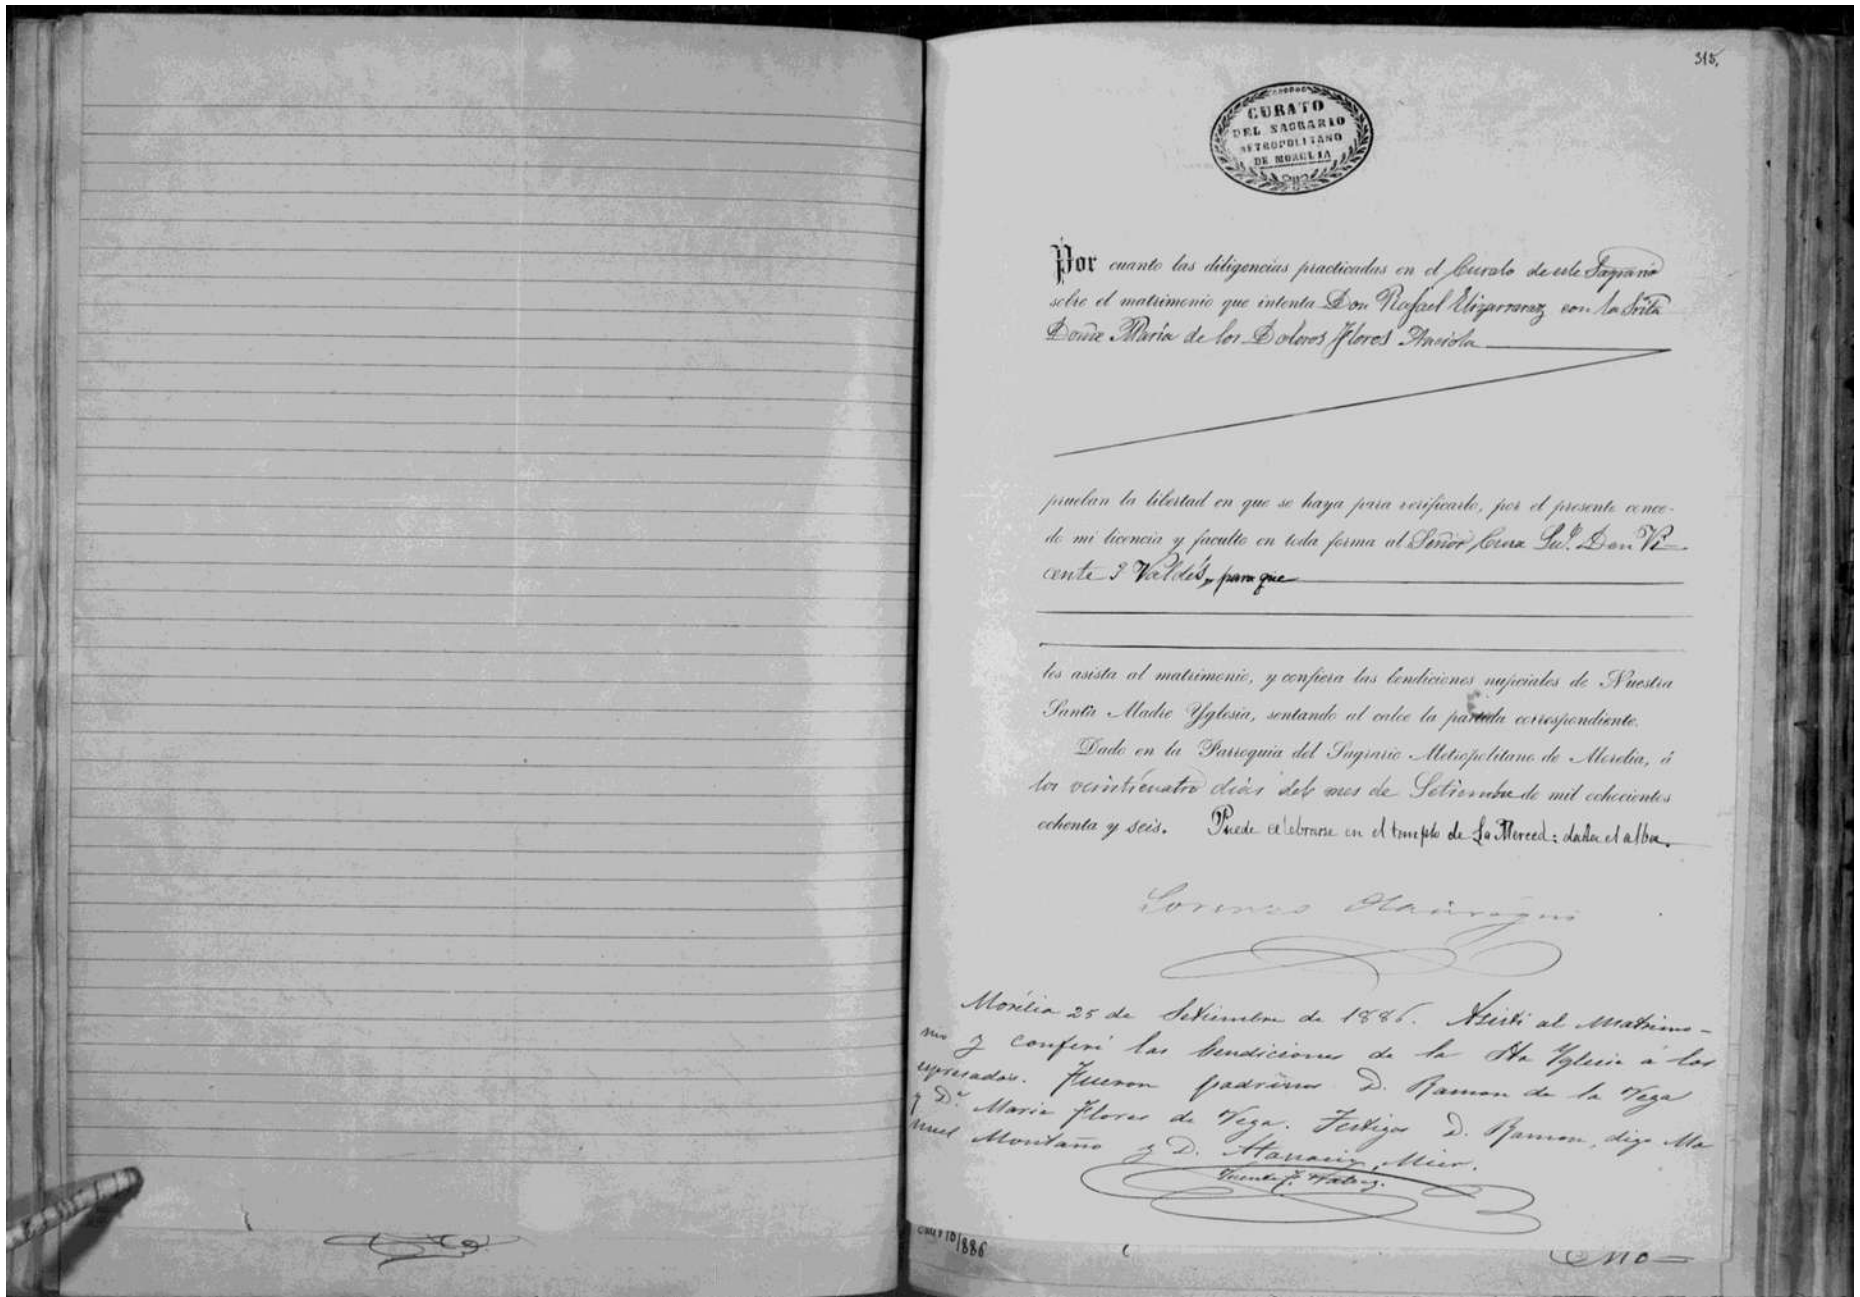 315.
CURATO
DEL SAGRARIO
METROPOLITANO
DE MORELIA
Por cuanto las diligencias practicadas en el Curato de este Sagrario
sobre el matrimonio que intenta Don Rafael Elizarraraz con la Srita
Doña María de los Dolores Flores
prueban la libertad en que se haya para verificarlo, por el presente conce-
do mi licencia y faculto en toda forma al Señor Cura Don Vi-
cente Valdés, para que
les asista al matrimonio, y confiera las bendiciones nupciales de Nuestra
Santa Madre Yglesia, sentando al calce la partida correspondiente.
Dado en la Parroquia del Sagrario Metropolitano de Morelia, á
los veinticuatro dias del mes de Setiembre de mil ochocientos
ochenta y seis. Puede celebrarse en el templo de La Merced: dada el alba.
Lorenzo Olaciregui
Morelia 25 de Setiembre de 1886. Asistí al Matrimo-
nio y conferí las bendiciones de la Sta Yglesia á los
espresados. Fueron padrinos D. Ramon de la Vega
y Da. Maria Flores de Vega. Testigos D. Ramon, digo Ma
nuel Montaño y D. Atanacio Mier.
1886